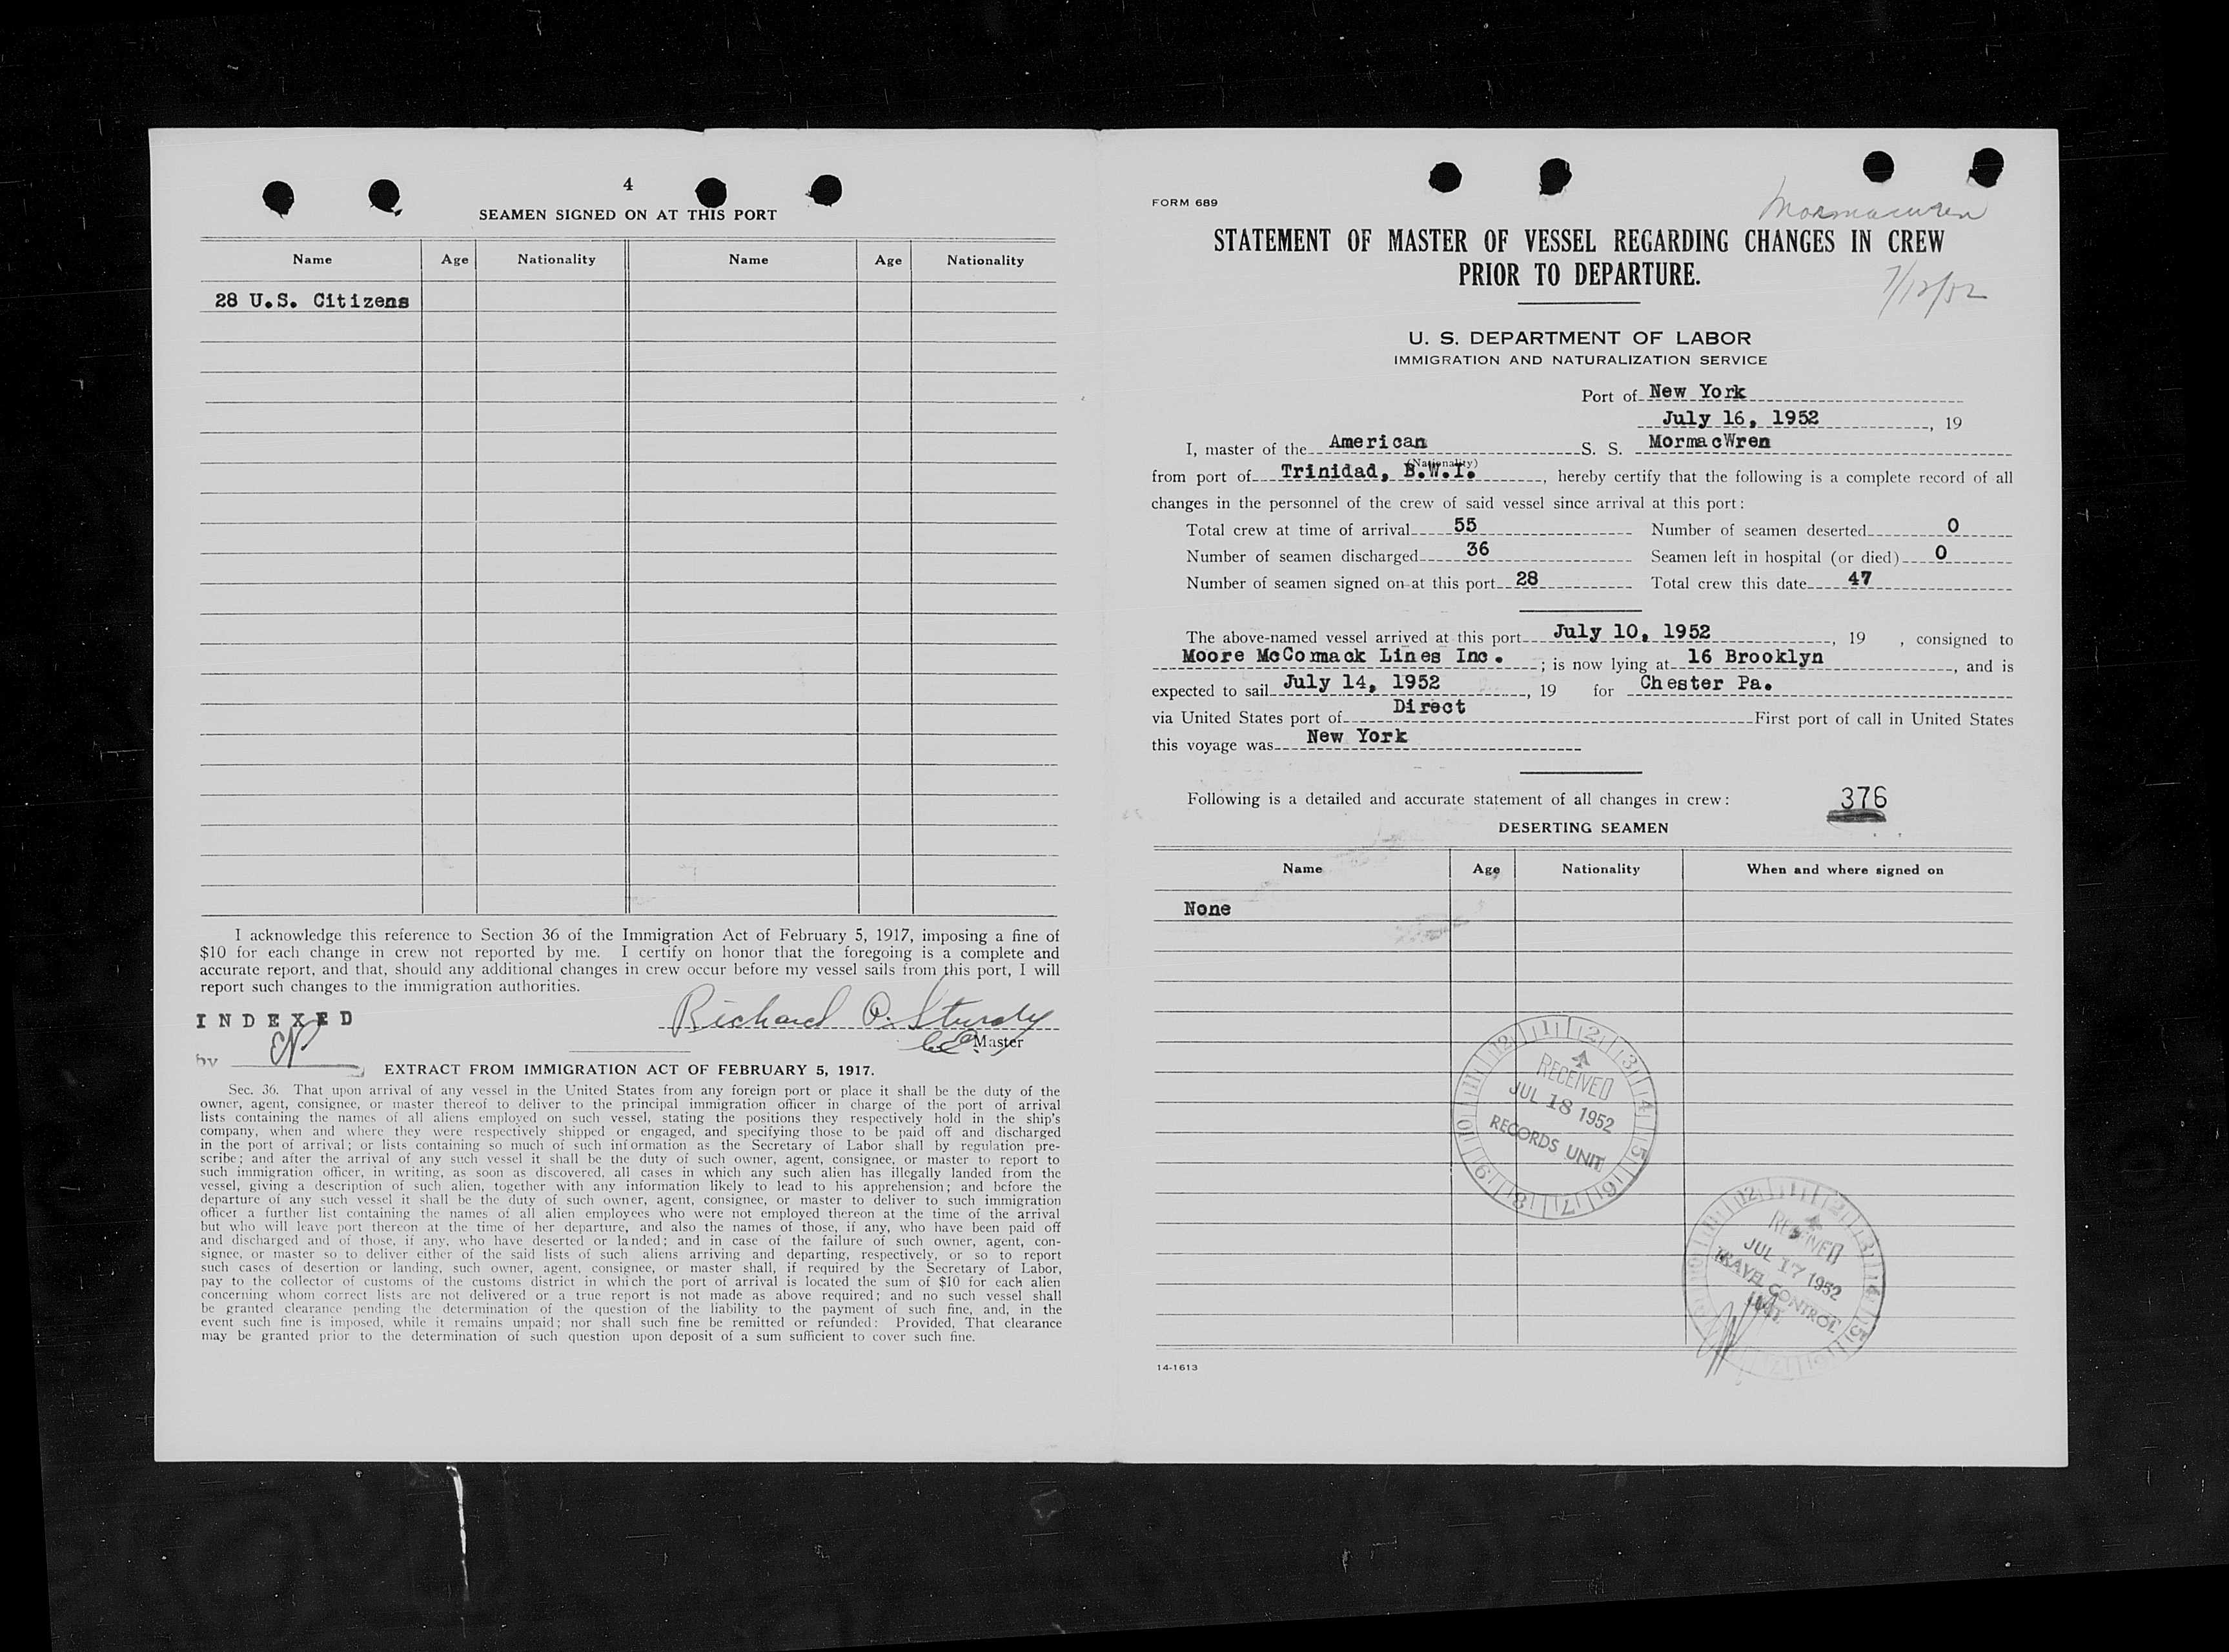 4
SEAMEN SIGNED ON AT THIS PORT
Name Age Nationality Name Age Nationality
28 U.S. Citizens
I acknowledge this reference to Section 36 of the Immigration Act of February 5, 1917, imposing a fine of
$10 for each change in crew not reported by me. I certify on honor that the foregoing is a complete and
accurate report, and that, should any additional changes in crew occur before my vessel sails from this port, I will
report such changes to the immigration authorities.
INDEXED
by
Richard O. Sturdy
Master
EXTRACT FROM IMMIGRATION ACT OF FEBRUARY 5, 1917.
Sec. 36. That upon arrival of any vessel in the United States from any foreign port or place it shall be the duty of the
owner, agent, consignee, or master thereof to deliver to the principal immigration officer in charge of the port of arrival
lists containing the names of all aliens employed on such vessel, stating the positions they respectively hold in the ship's
company, when and where they were respectively shipped or engaged, and specifying those to be paid off and discharged
in the port of arrival; or lists containing so much of such information as the Secretary of Labor shall by regulation pre-
scribe; and after the arrival of any such vessel it shall be the duty of such owner, agent, consignee, or master to report to
such immigration officer, in writing, as soon as discovered, all cases in which any such alien has illegally landed from the
vessel, giving a description of such alien, together with any information likely to lead to his apprehension; and before the
departure of any such vessel it shall be the duty of such owner, agent, consignee, or master to deliver to such immigration
officer a further list containing the names of all alien employees who were not employed thereon at the time of the arrival
but who will leave port thereon at the time of her departure, and also the names of those, if any, who have been paid off
and discharged and of those, if any, who have deserted or landed; and in case of the failure of such owner, agent, con-
signee, or master so to deliver either of the said lists of such aliens arriving and departing, respectively, or so to report
such cases of desertion or landing, such owner, agent, consignee, or master shall, if required by the Secretary of Labor,
pay to the collector of customs of the customs district in which the port of arrival is located the sum of $10 for each alien
concerning whom correct lists are not delivered or a true report is not made as above required; and no such vessel shall
be granted clearance pending the determination of the question of the liability to the payment of such fine, and, in the
event such fine is imposed, while it remains unpaid; nor shall such fine be remitted or refunded: Provided, That clearance
may be granted prior to the determination of such question upon deposit of a sum sufficient to cover such fine.
FORM 689
Mormacwren
STATEMENT OF MASTER OF VESSEL REGARDING CHANGES IN CREW
PRIOR TO DEPARTURE.
U. S. DEPARTMENT OF LABOR
IMMIGRATION AND NATURALIZATION SERVICE
Port of New York
July 16, 1952, 19
I, master of the American S. S. MormacWren
(Nationality)
from port of Trinidad, B.W.I., hereby certify that the following is a complete record of all
changes in the personnel of the crew of said vessel since arrival at this port:
Total crew at time of arrival 55 Number of seamen deserted 0
Number of seamen discharged 36 Seamen left in hospital (or died) 0
Number of seamen signed on at this port 28 Total crew this date 47
The above-named vessel arrived at this port July 10, 1952, 19 , consigned to
Moore McCormack Lines Inc. ; is now lying at 16 Brooklyn, and is
expected to sail July 14, 1952, 19 for Chester Pa.
via United States port of Direct First port of call in United States
this voyage was New York
Following is a detailed and accurate statement of all changes in crew: 376
DESERTING SEAMEN
Name Age Nationality When and where signed on
None
RECEIVED
JUL 18 1952
RECORDS UNIT
RECEIVED
JUL 17 1952
TRAVEL CONTROL
UNIT
14-1613